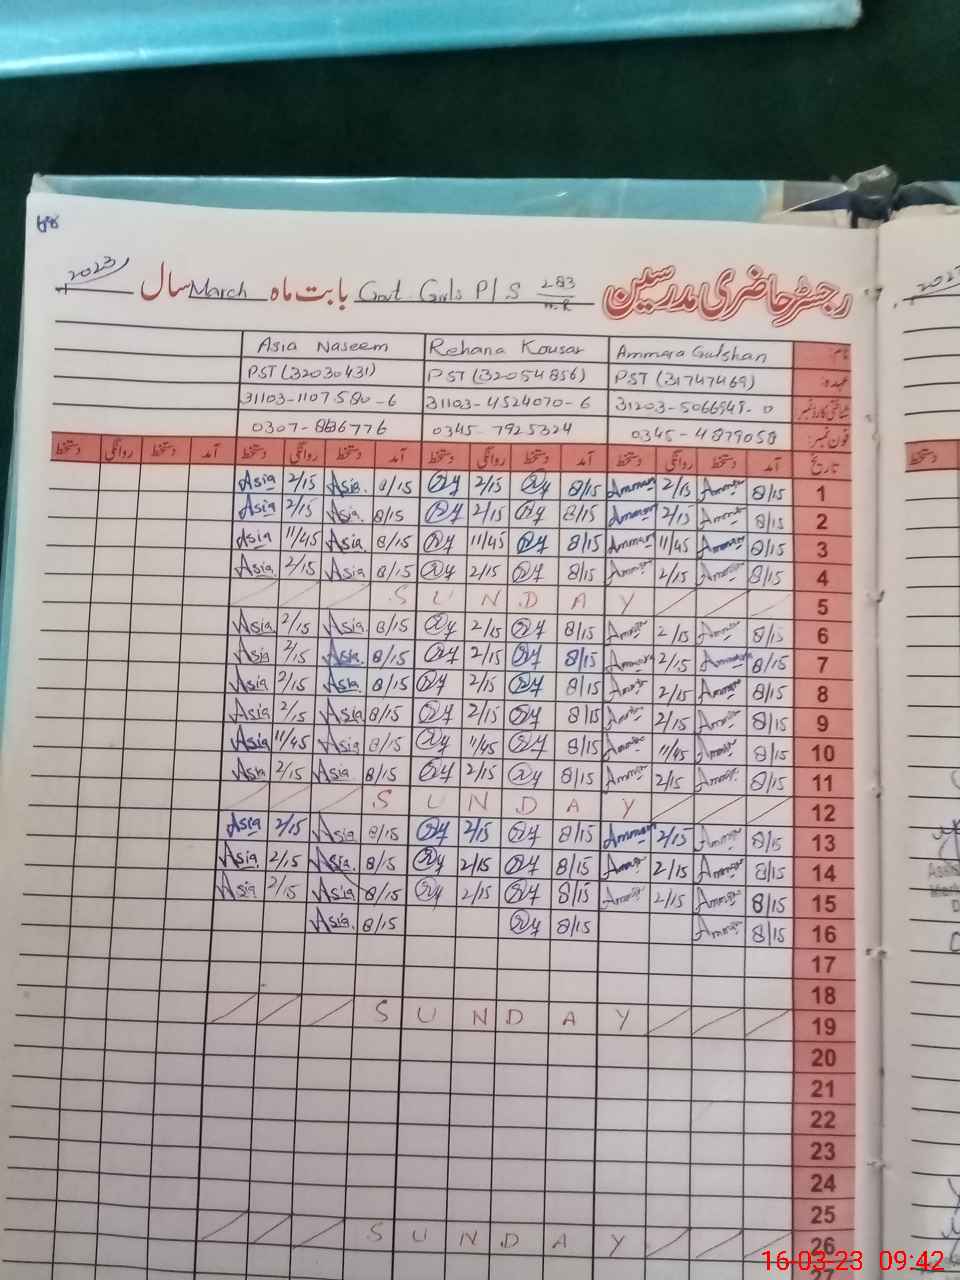 رجسٹر حاضری مدرسین Govt. Girls P/S 283/M.R بابت ماہ March سال 2023
نام: Ammara Gulshan Rehana Kousar Asia Naseem
عہدہ: PST (31747469) PST (32054856) PST (32030431)
شناختی کارڈ نمبر 31203-5066949-0 31103-4524070-6 31103-1107580-6
فون نمبر: 0345-4879058 0345-7925324 0307-886776
تاریخ آمد دستخط روانگی دستخط آمد دستخط روانگی دستخط آمد دستخط روانگی دستخط آمد دستخط روانگی دستخط
1 8/15 Ammara 2/15 Ammara 8/15 2/15 8/15 Asia 2/15 Asia
2 8/15 Ammara 2/15 Ammara 8/15 2/15 8/15 Asia 2/15 Asia
3 8/15 Ammara 11/45 Ammara 8/15 11/45 8/15 Asia 11/45 Asia
4 8/15 Ammara 2/15 Ammara 8/15 2/15 8/15 Asia 2/15 Asia
5 SUNDAY
6 8/15 Ammara 2/15 Ammara 8/15 2/15 8/15 Asia 2/15 Asia
7 8/15 Ammara 2/15 Ammara 8/15 2/15 8/15 Asia 2/15 Asia
8 8/15 Ammara 2/15 Ammara 8/15 2/15 8/15 Asia 2/15 Asia
9 8/15 Ammara 2/15 Ammara 8/15 2/15 8/15 Asia 2/15 Asia
10 8/15 Ammara 11/45 Ammara 8/15 11/45 8/15 Asia 11/45 Asia
11 8/15 Ammara 2/15 Ammara 8/15 2/15 8/15 Asia 2/15 Asia
12 SUNDAY
13 8/15 Ammara 2/15 Ammara 8/15 2/15 8/15 Asia 2/15 Asia
14 8/15 Ammara 2/15 Ammara 8/15 2/15 8/15 Asia 2/15 Asia
15 8/15 Ammara 2/15 Ammara 8/15 2/15 8/15 Asia 2/15 Asia
16 8/15 Ammara 8/15 8/15 Asia
17
18
19 SUNDAY
20
21
22
23
24
25
26 SUNDAY
27
16-03-23 09:42